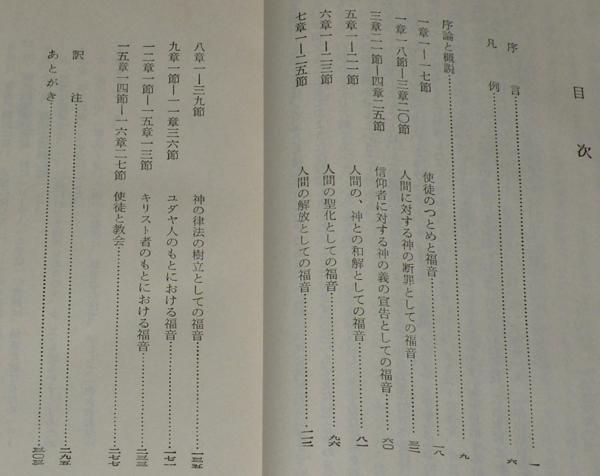 目次
序言 一
凡例 六
序論と概説 九
一章一―一七節 使徒のつとめと福音 一八
一章一八節―三章二〇節 人間に対する神の断罪としての福音 三二
三章二一節―四章二五節 信仰者に対する神の義の宣告としての福音 六〇
五章一―二一節 人間の、神との和解としての福音 八一
六章一―二三節 人間の聖化としての福音 九六
七章一―二五節 人間の解放としての福音 一一二
八章一―三九節 神の律法の樹立としての福音 一三五
九章一節―一一章三六節 ユダヤ人のもとにおける福音 一七一
一二章一節―一五章一三節 キリスト者のもとにおける福音 二三三
一五章一四節―一六章二七節 使徒と教会 二七七
訳注 二九五
あとがき 三〇三